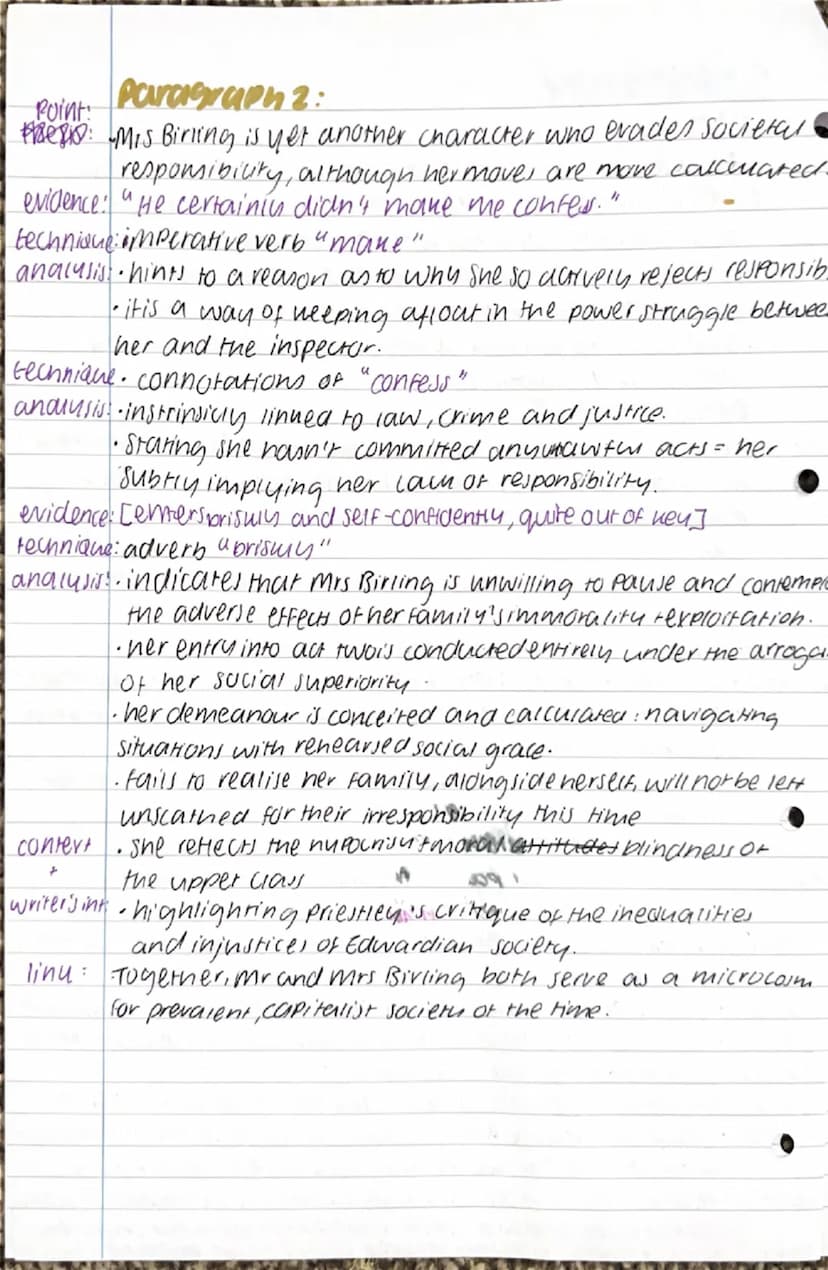 Paragraph 2:
Point:
Mrs Birling is yet another character who evades societal
responsibility, although her moves are more calculated.
evidence: "He certainly didn't make me confess."
technique: imperative verb "make"
analysis: • hints to a reason as to why she so actively rejects responsib
• it is a way of keeping afloat in the power struggle betwee
her and the inspector.
technique • connotations of "confess"
analysis: • instrinsicly linked to law, crime and justice.
• stating she hasn't committed any unlawful acts = her
subtly implying her lack of responsibility.
evidence: [enters briskly and self-confidently, quite out of key]
technique: adverb "briskly"
analysis: • indicates that Mrs Birling is unwilling to pause and contempl
the adverse effects of her family's immorality + exploitation.
• her entry into act two is conducted entirely under the arroga
of her social superiority.
• her demeanour is conceited and calculated: navigating
situations with rehearsed social grace.
• fails to realise her family, alongside herself, will not be left
unscathed for their irresponsibility this time
context • she reflects the hypocrisy + moral attitudes blindness of
+ the upper class
writer's int • highlighting Priestley's critique of the inequalities
and injustices of Edwardian society.
link: Together, Mr and Mrs Birling both serve as a microcosm
for prevalent, capitalist society of the time.